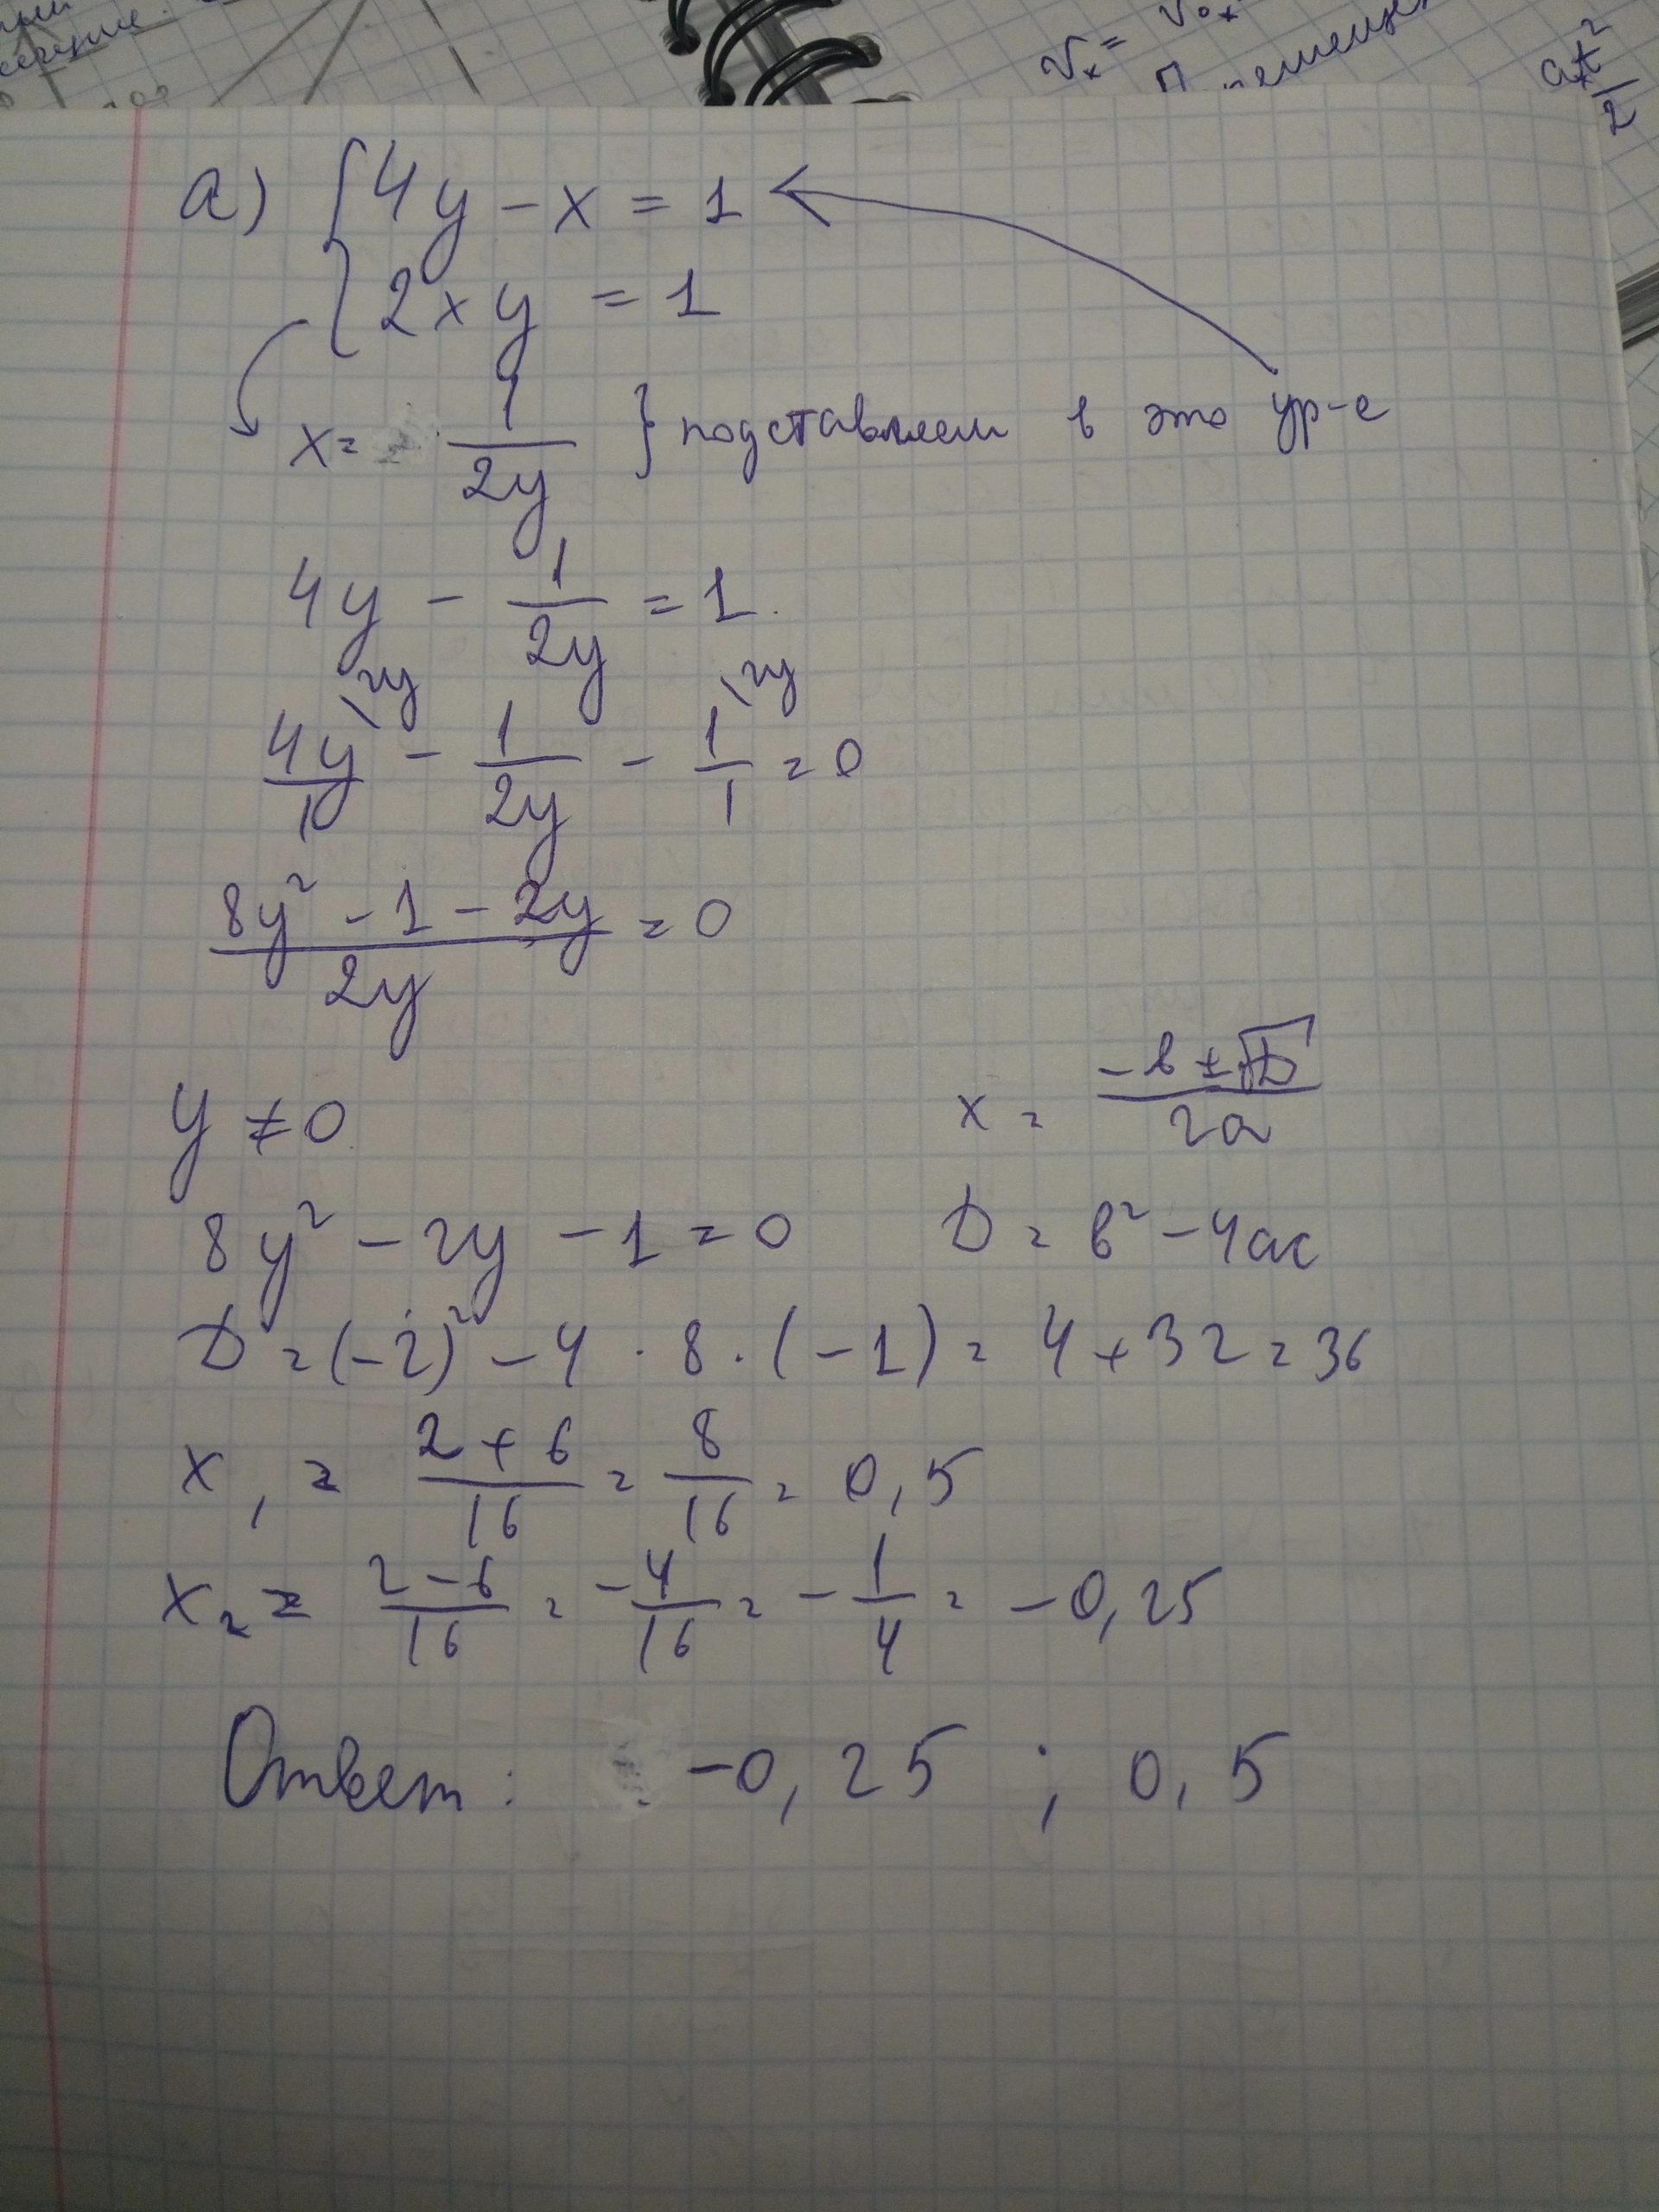 Vx = Vox
ax t²/2
а) { 4y - x = 1
2xy = 1
x = 1/2y } подставляем в это ур-е
4y - 1/2y = 1.
4y/1 \2y - 1/2y - 1/1 \2y = 0
8y² - 1 - 2y/2y = 0
y ≠ 0
x = -b ± √D/2a
8y² - 2y - 1 = 0
D = b² - 4ac
D = (-2)² - 4 · 8 · (-1) = 4 + 32 = 36
x₁ = 2 + 6/16 = 8/16 = 0,5
x₂ = 2 - 6/16 = -4/16 = -1/4 = -0,25
Ответ: -0,25 ; 0,5